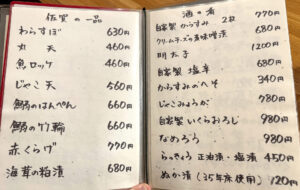 佐賀の一品
わらすぼ 630円
丸天 460円
魚ロッケ 460円
じゃこ天 560円
鯛のはんぺん 660円
鯛の竹輪 660円
赤くらげ 770円
海茸の粕漬 680円
酒の肴
自家製 からすみ 2枚 770円
クリームチーズの味噌漬 680円
明太子 1200円
自家製 塩辛 680円
からすみのへそ 340円
じゃこみょうが 780円
自家製 いくらおろし 980円
なめろう 980円
らっきょう 正油漬・塩漬 450円
ぬか漬(35年床使用) 120円